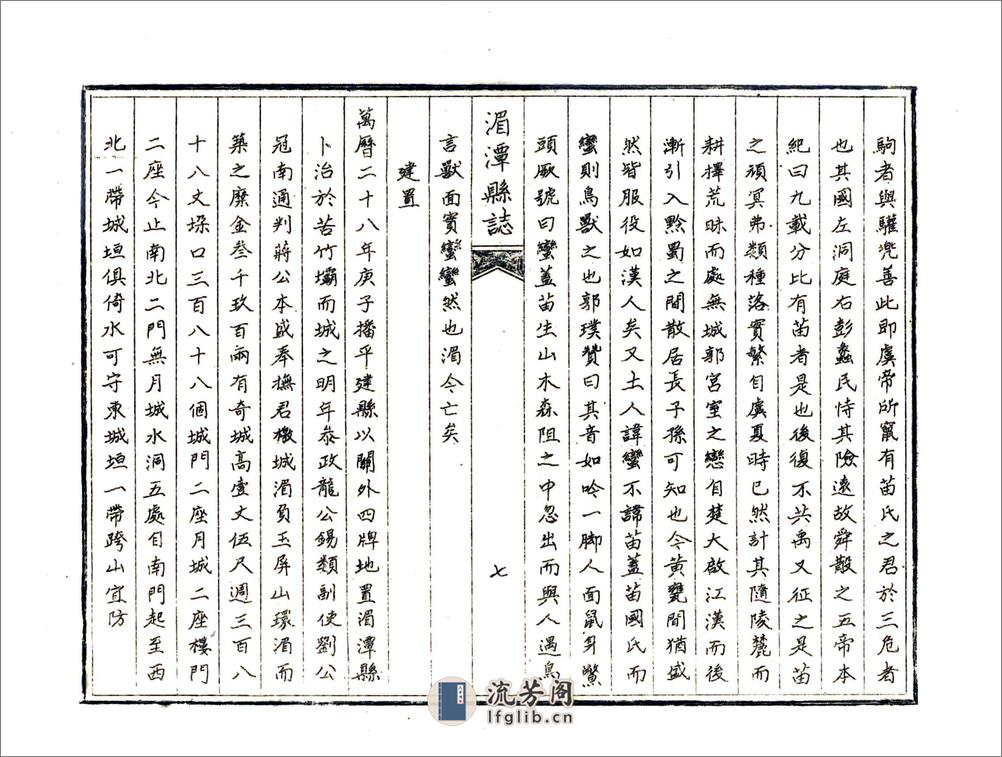 駒者與驩兜善此即虞帝所竄有苗氏之君於三危者
也其國左洞庭右彭蠡氏恃其險遠故舜散之五帝本
紀曰九載分比有苗者是也後復不共禹又征之是苗
之頑冥弗類種落實繁自虞夏時已然計其隨陵麓而
耕擇荒昧而處無城郭宮室之戀自楚大啟江漢而後
漸引入黔蜀之間散居長子孫可知也今黃甕間猶盛
然皆服役如漢人矣又土人諱蠻不諱苗蓋苗國氏而
蠻則鳥獸之也郭璞贊曰其音如吟一脚人面鼠身鱉
頭厥號曰蠻蓋苗生山木森阻之中忽出而與人遇鳥
湄潭縣誌
七
言獸面實蠻蠻然也湄今亡矣
建置
萬曆二十八年庚子播平建縣以關外四牌地置湄潭縣
卜治於苦竹壩而城之明年叅政龍公錫類副使劉公
冠南通判蔣公本盛奉撫君檄城湄負玉屏山環湄而
築之糜金叁千玖百兩有奇城高壹丈伍尺週三百八
十八丈垜口三百八十八個城門二座月城二座樓門
二座今止南北二門無月城水洞五處自南門起至西
北一帶城垣俱倚水可守東城垣一帶跨山宜防
流芳阁
lfglib.cn